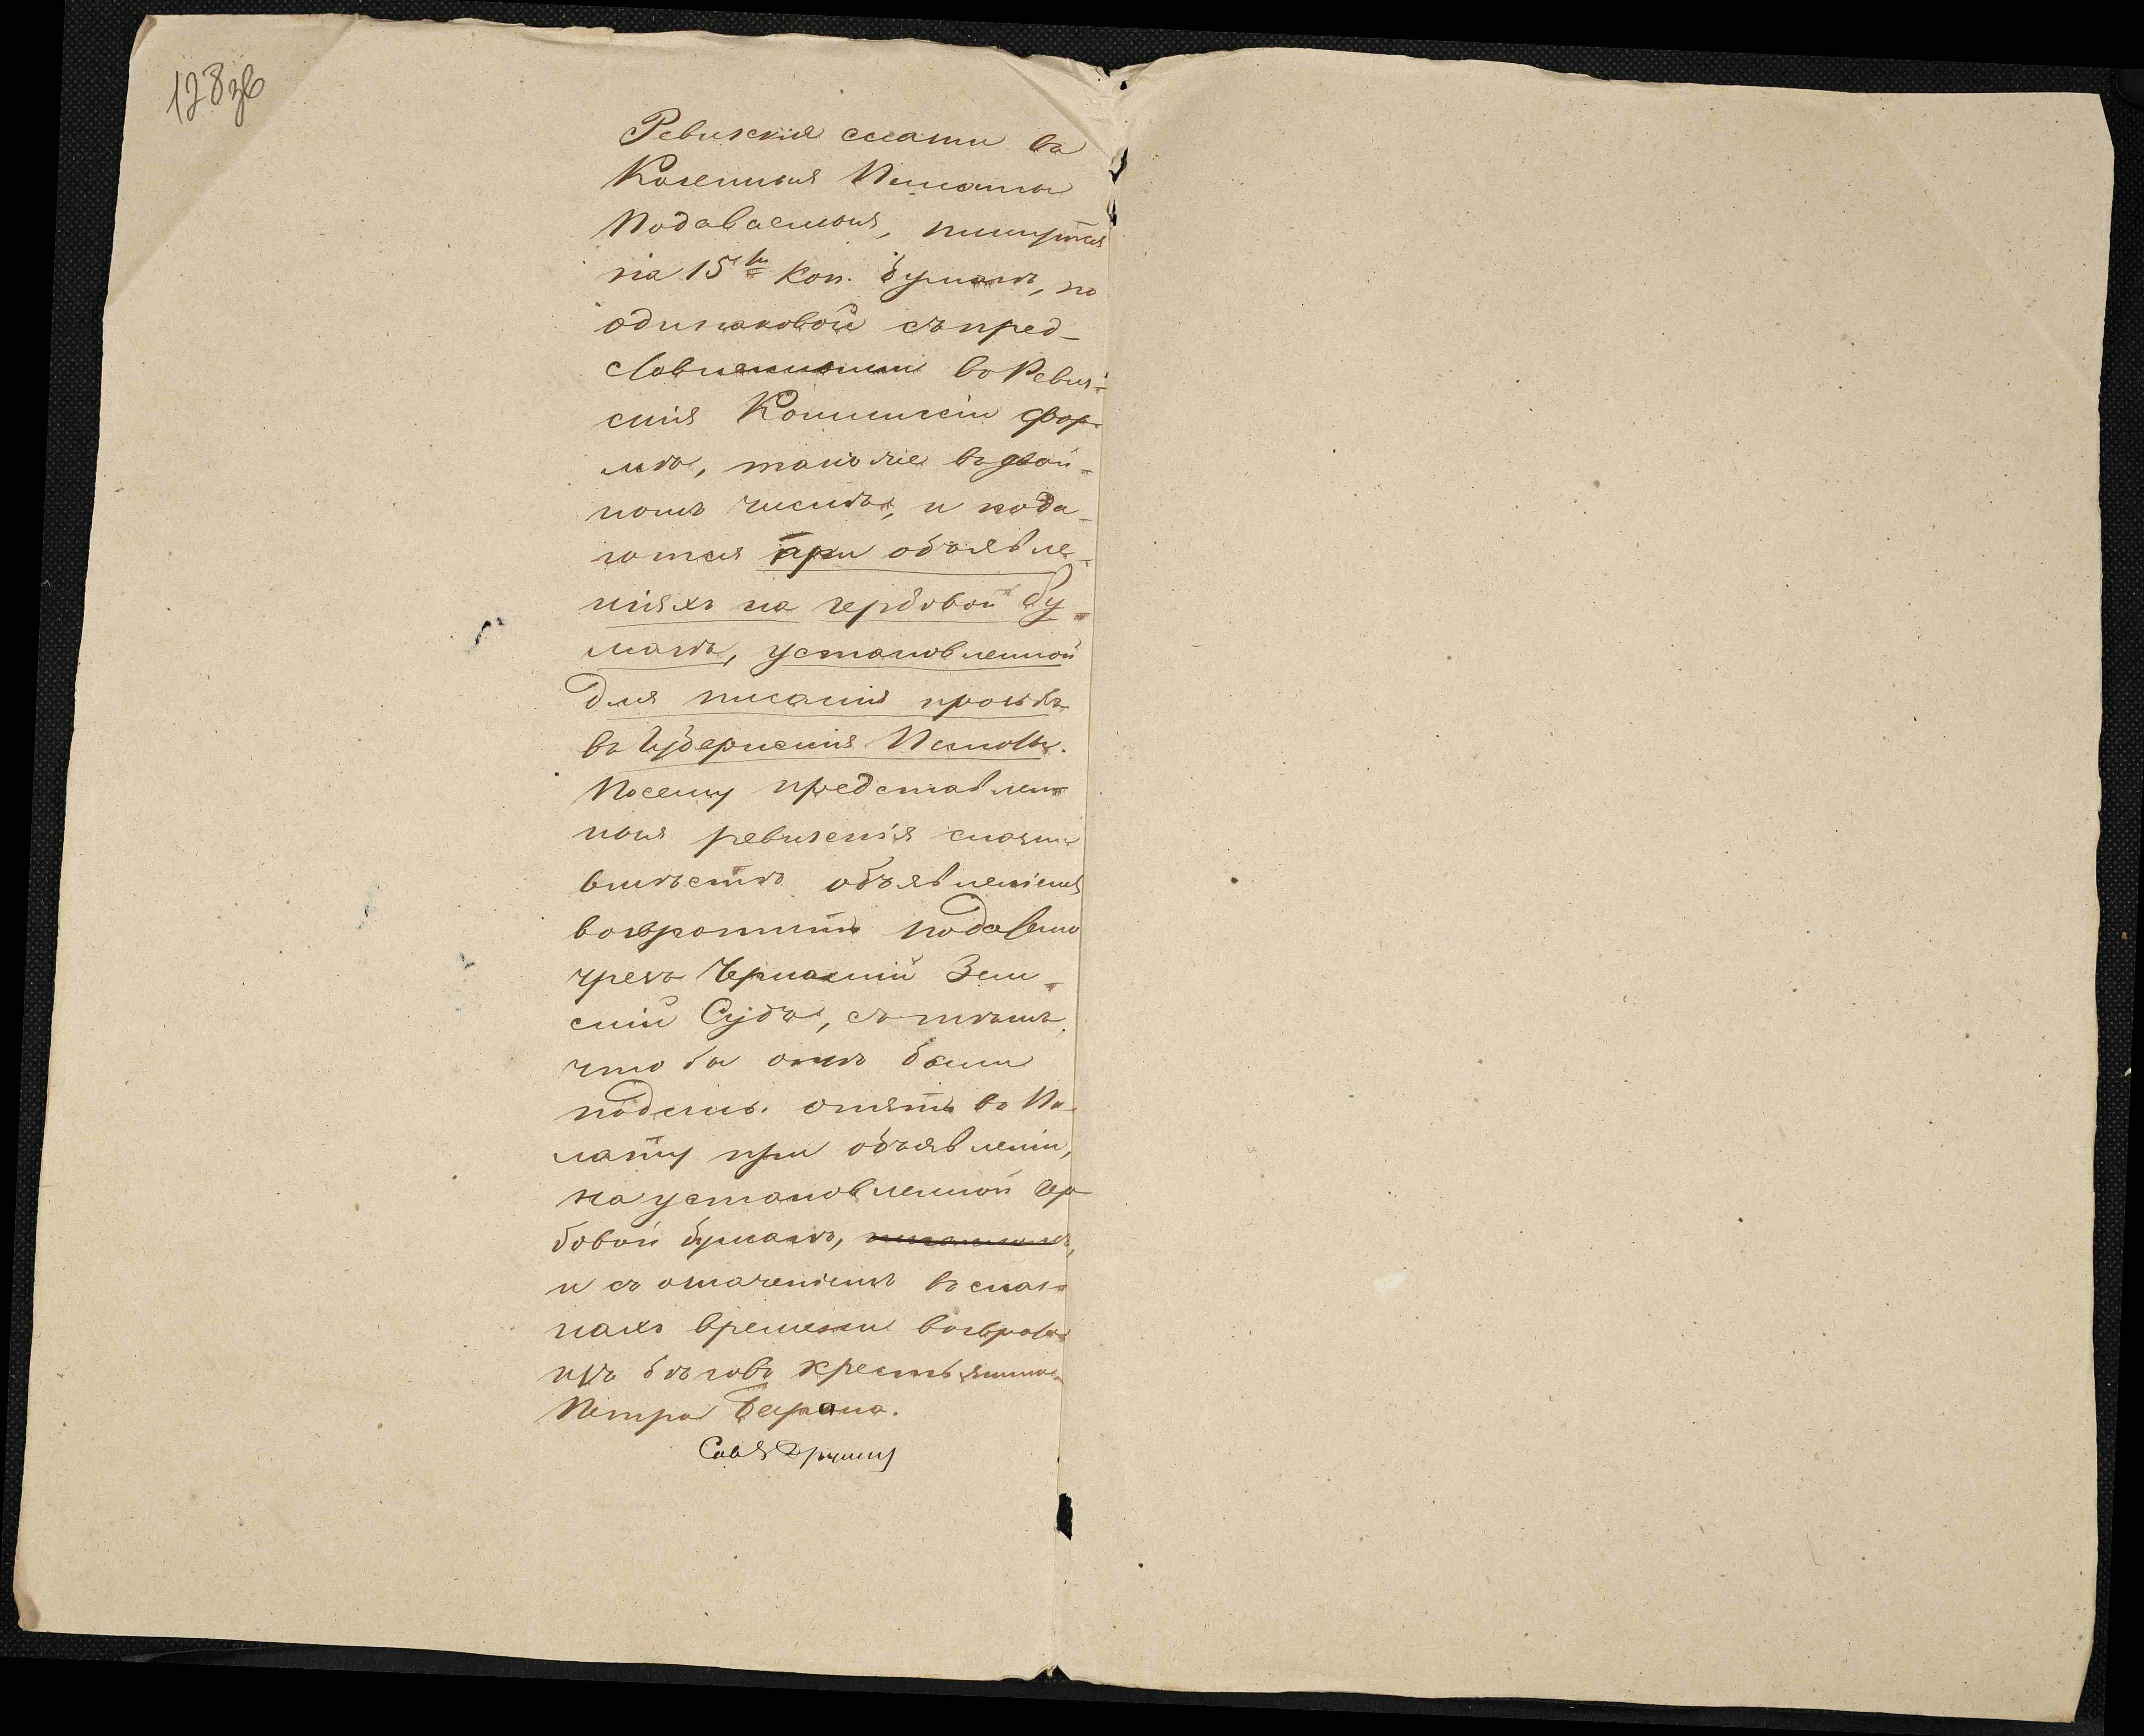 128 зв
Ревизскія сказки въ
Казенныя Палаты
Подаваемыя, пишутся
на 15ти Коп. бумагѣ, по
одинаковой съ пред-
ставляемыми въ Ревиз-
скія Коммисіи фор-
мѣ, также въ двой-
номъ числѣ, и пода-
ются при объявле-
ніяхъ на гербовой бу-
магѣ, установленной
для писанія прозьбъ
въ Губернскія Палаты.
Посему представлен
ныя ревизскія сказки
вмѣстѣ объявленіемъ
возвратить
чрезъ Зем-
скій Судъ, съ тѣмъ,
что бы онѣ были
опять въ Па-
лату при объявленіи,
на установленной гер
бовой бумагѣ,
и съ означеніемъ въ сказ-
кахъ времени возврата
изъ бѣговъ крестьянина
Петра Барана.